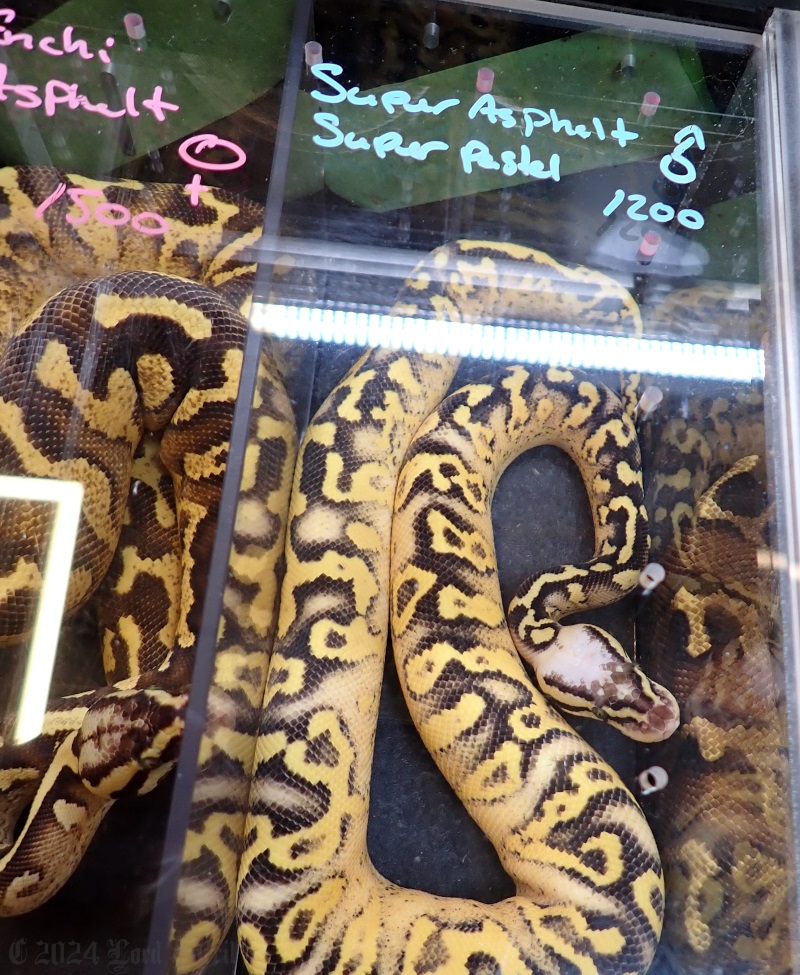 Enchi
Asphalt
♀
1500
Super Asphalt ♂
Super Pastel
1200
© 2024 Lord